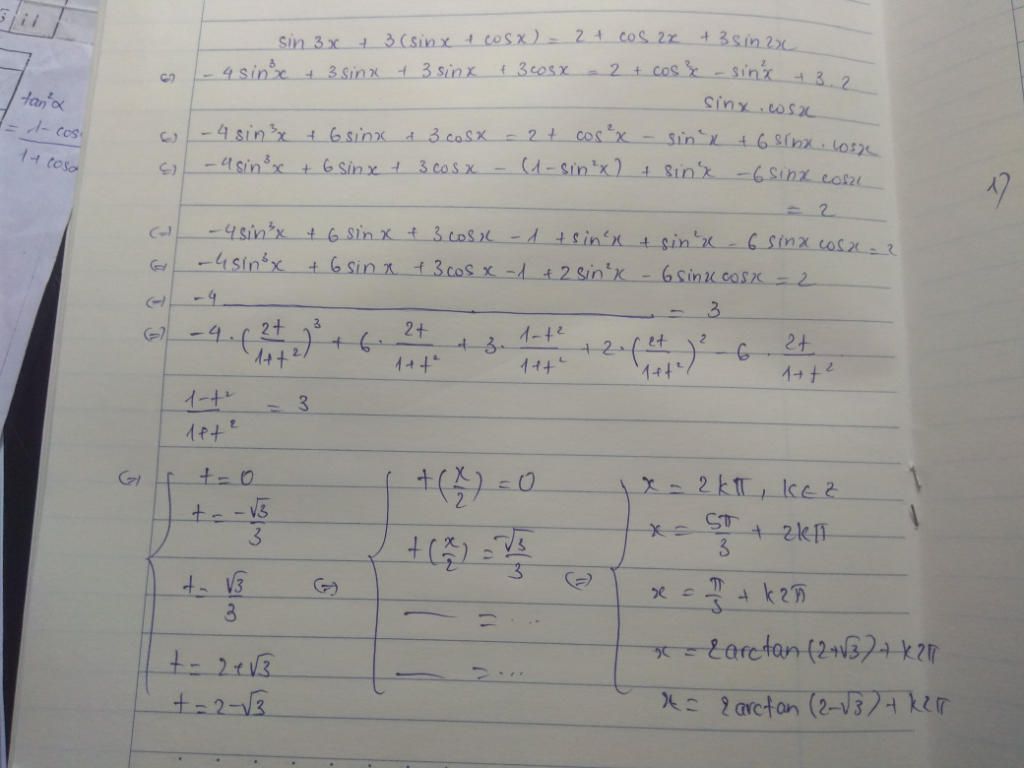 ii
tan²α
= 1 - cosα
1 + cosα
sin 3x + 3(sinx + cosx) = 2 + cos 2x + 3 sin 2x
(=) -4sin³x + 3sinx + 3sinx + 3cosx = 2 + cos²x - sin²x + 3.2
sinx.cosx
(=) -4sin³x + 6sinx + 3cosx = 2 + cos²x - sin²x + 6sinx.cosx
(=) -4sin³x + 6sinx + 3cosx - (1-sin²x) + sin²x - 6sinx cosx
= 2
1)
(=) -4sin³x + 6sinx + 3cosx - 1 + sin²x + sin²x - 6sinxcosx = 2
(=) -4sin³x + 6sinx + 3cosx - 1 + 2sin²x - 6sinxcosx = 2
(=) -4 ———— = 3
(=) -4.(2t/1+t²)³ + 6.2t/1+t² + 3.1-t²/1+t² + 2.(2t/1+t²)² - 6.2t/1+t²
1-t²/1+t² = 3
(=) t = 0 t(x/2) = 0 x = 2kπ, k∈Z
t = -√3/3 t(x/2) = -√3/3 x = 5π/3 + 2kπ
t = √3/3 (=) — = ... (=) x = π/3 + k2π
t = 2+√3 — = ... x = 2arctan(2+√3) + k2π
t = 2-√3 x = 2arctan(2-√3) + k2π